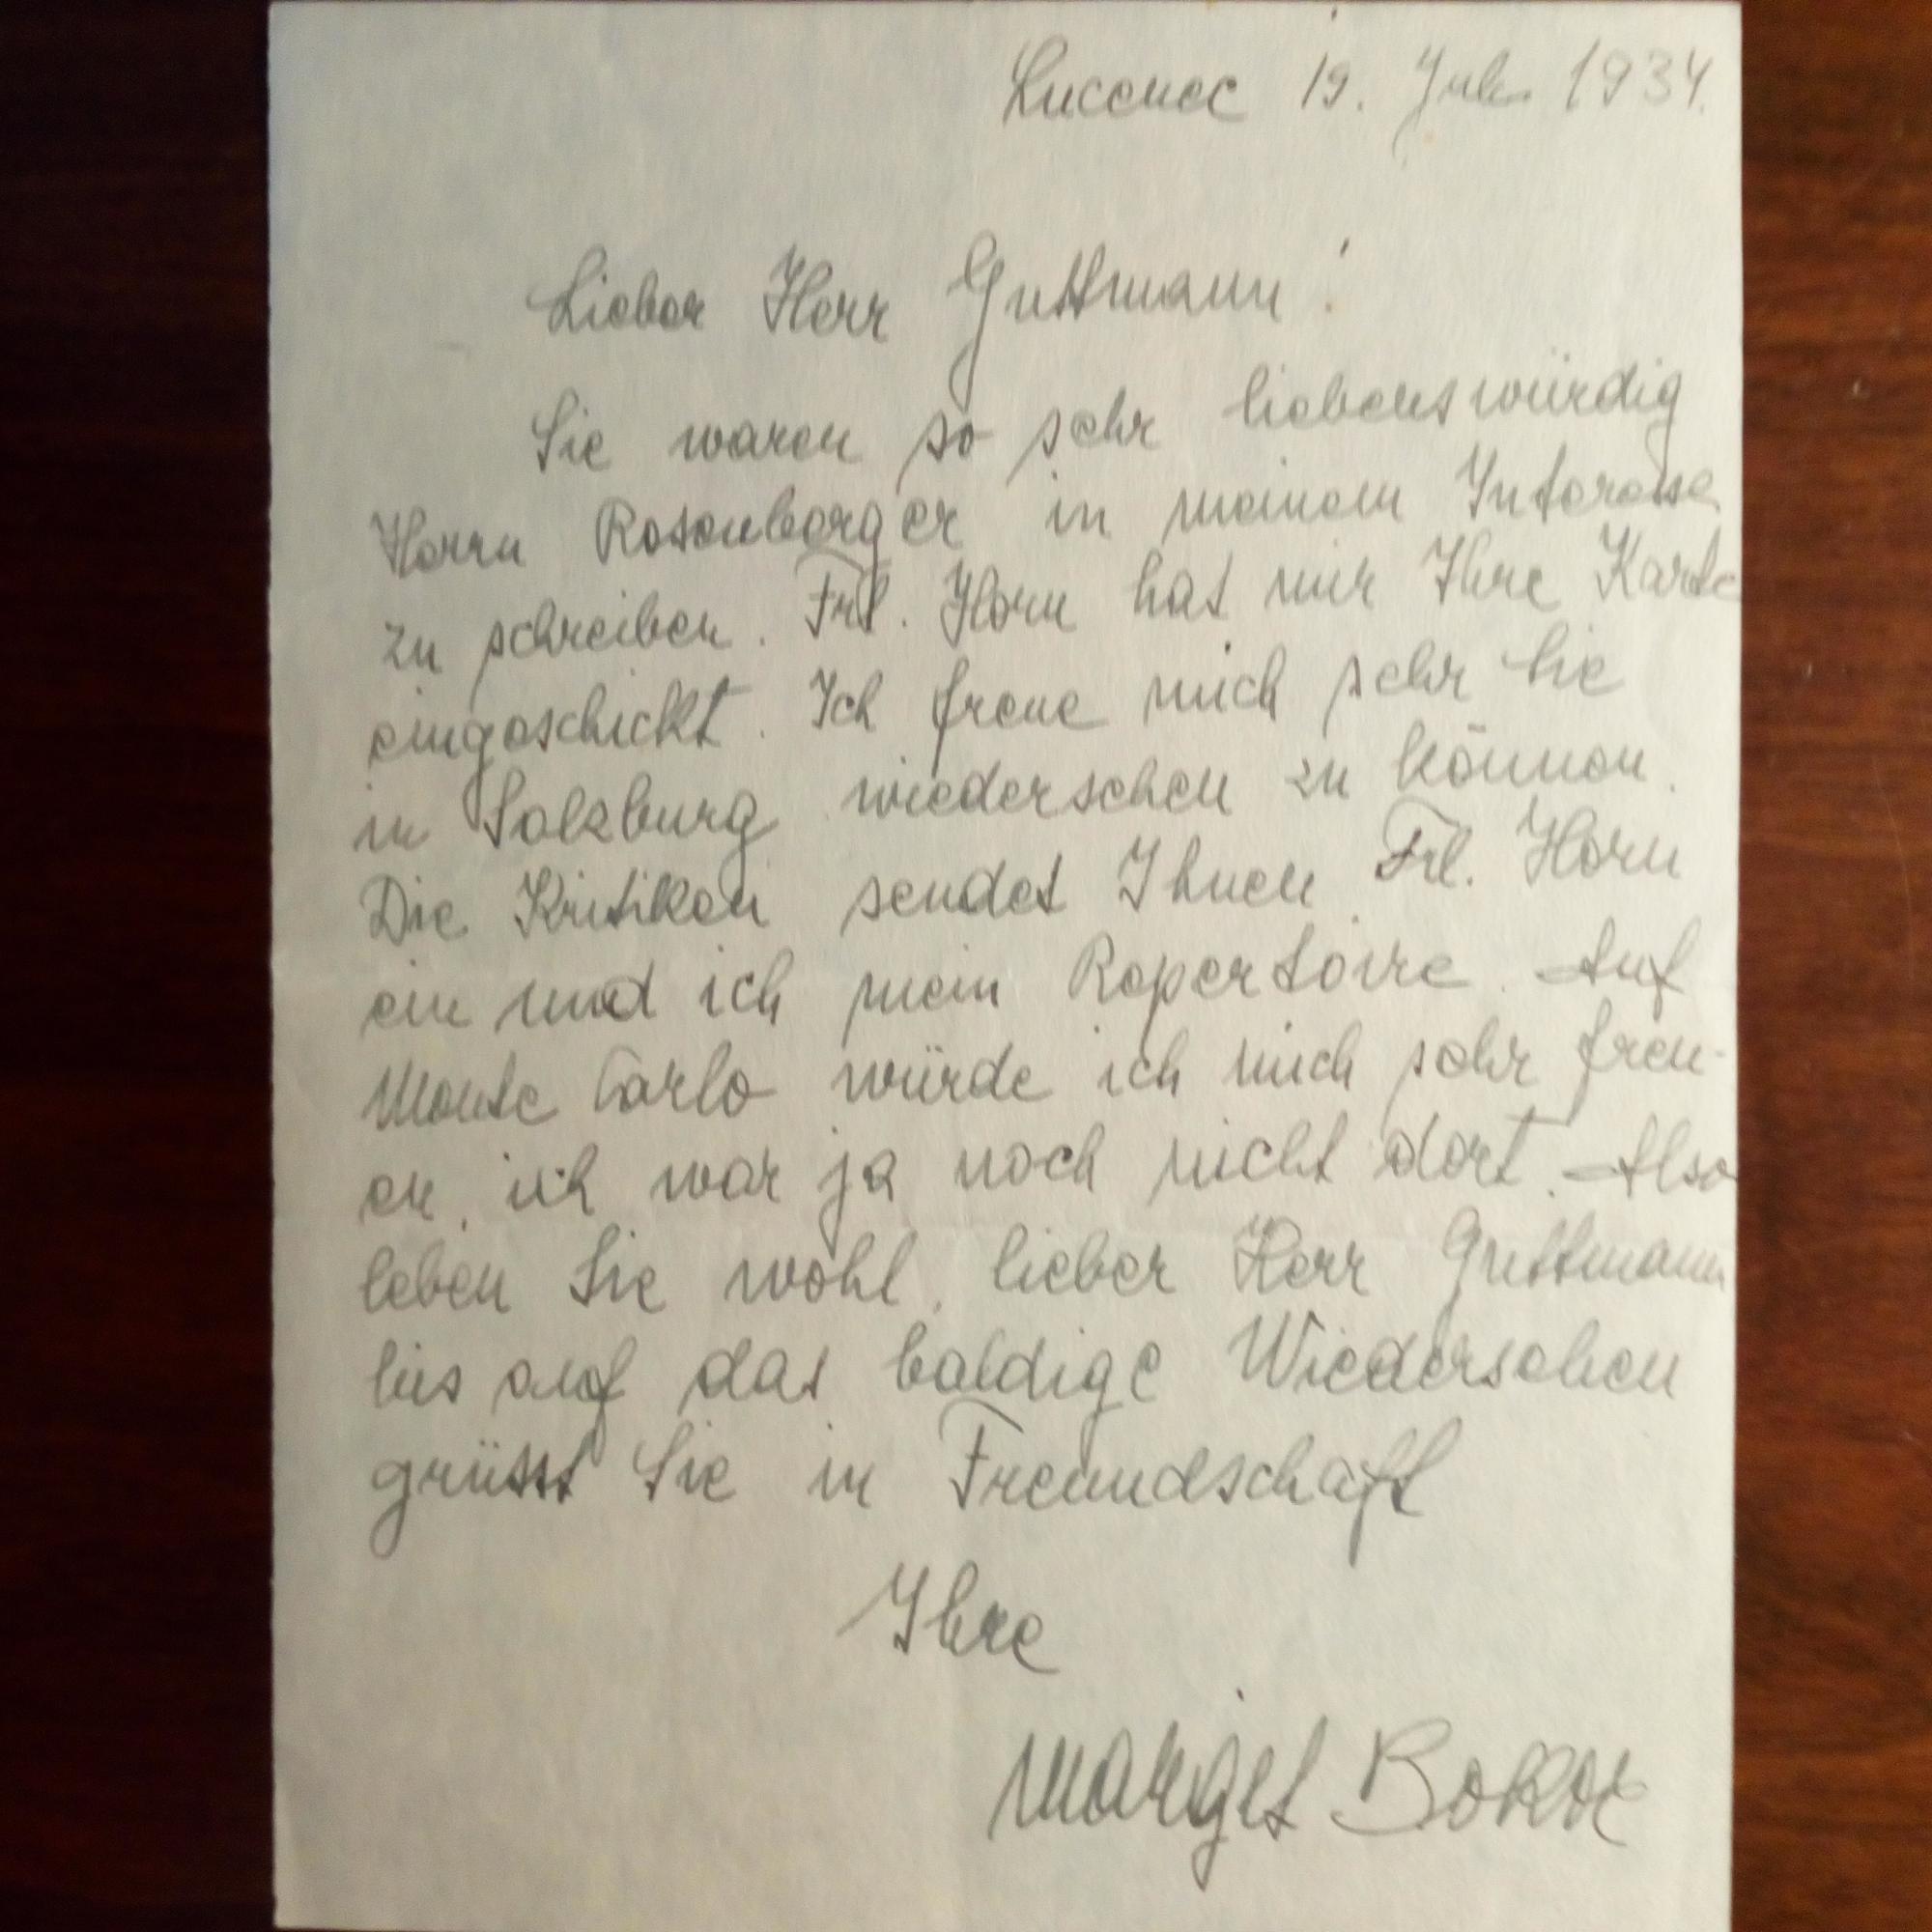 Lucenec 19. Juli 1934.
Lieber Herr Guttmann!
Sie waren so sehr liebenswürdig
Herrn Rosenberger in meinem Interesse
zu schreiben. Frl. Horn hat mir Ihre Karte
eingeschickt. Ich freue mich sehr Sie
in Salzburg wiedersehen zu können.
Die Kritiken sendet Ihnen Frl. Horn
ein und ich mein Repertoire. Auf
Monte Carlo würde ich mich sehr freu-
en, ich war ja noch nicht dort. Also
leben Sie wohl, lieber Herr Guttmann
bis auf das baldige Wiedersehen
grüsst Sie in Freundschaft
Ihre
Margit Bokor